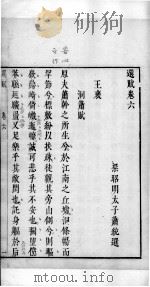 選賦卷六
梁昭明太子蕭統選
王褒
洞簫賦
原夫簫幹之所生兮於江南之丘墟洞條暢而
罕節兮標敷紛以扶疎徒觀其旁山側兮則嶇
嶔巋崎倚巇迤靡誠可悲乎其不安也彌望儻
莽聯延曠盪又足樂乎其敞閑也託身軀於后
選賦 卷六 一
mtoou.info
mtoou.info